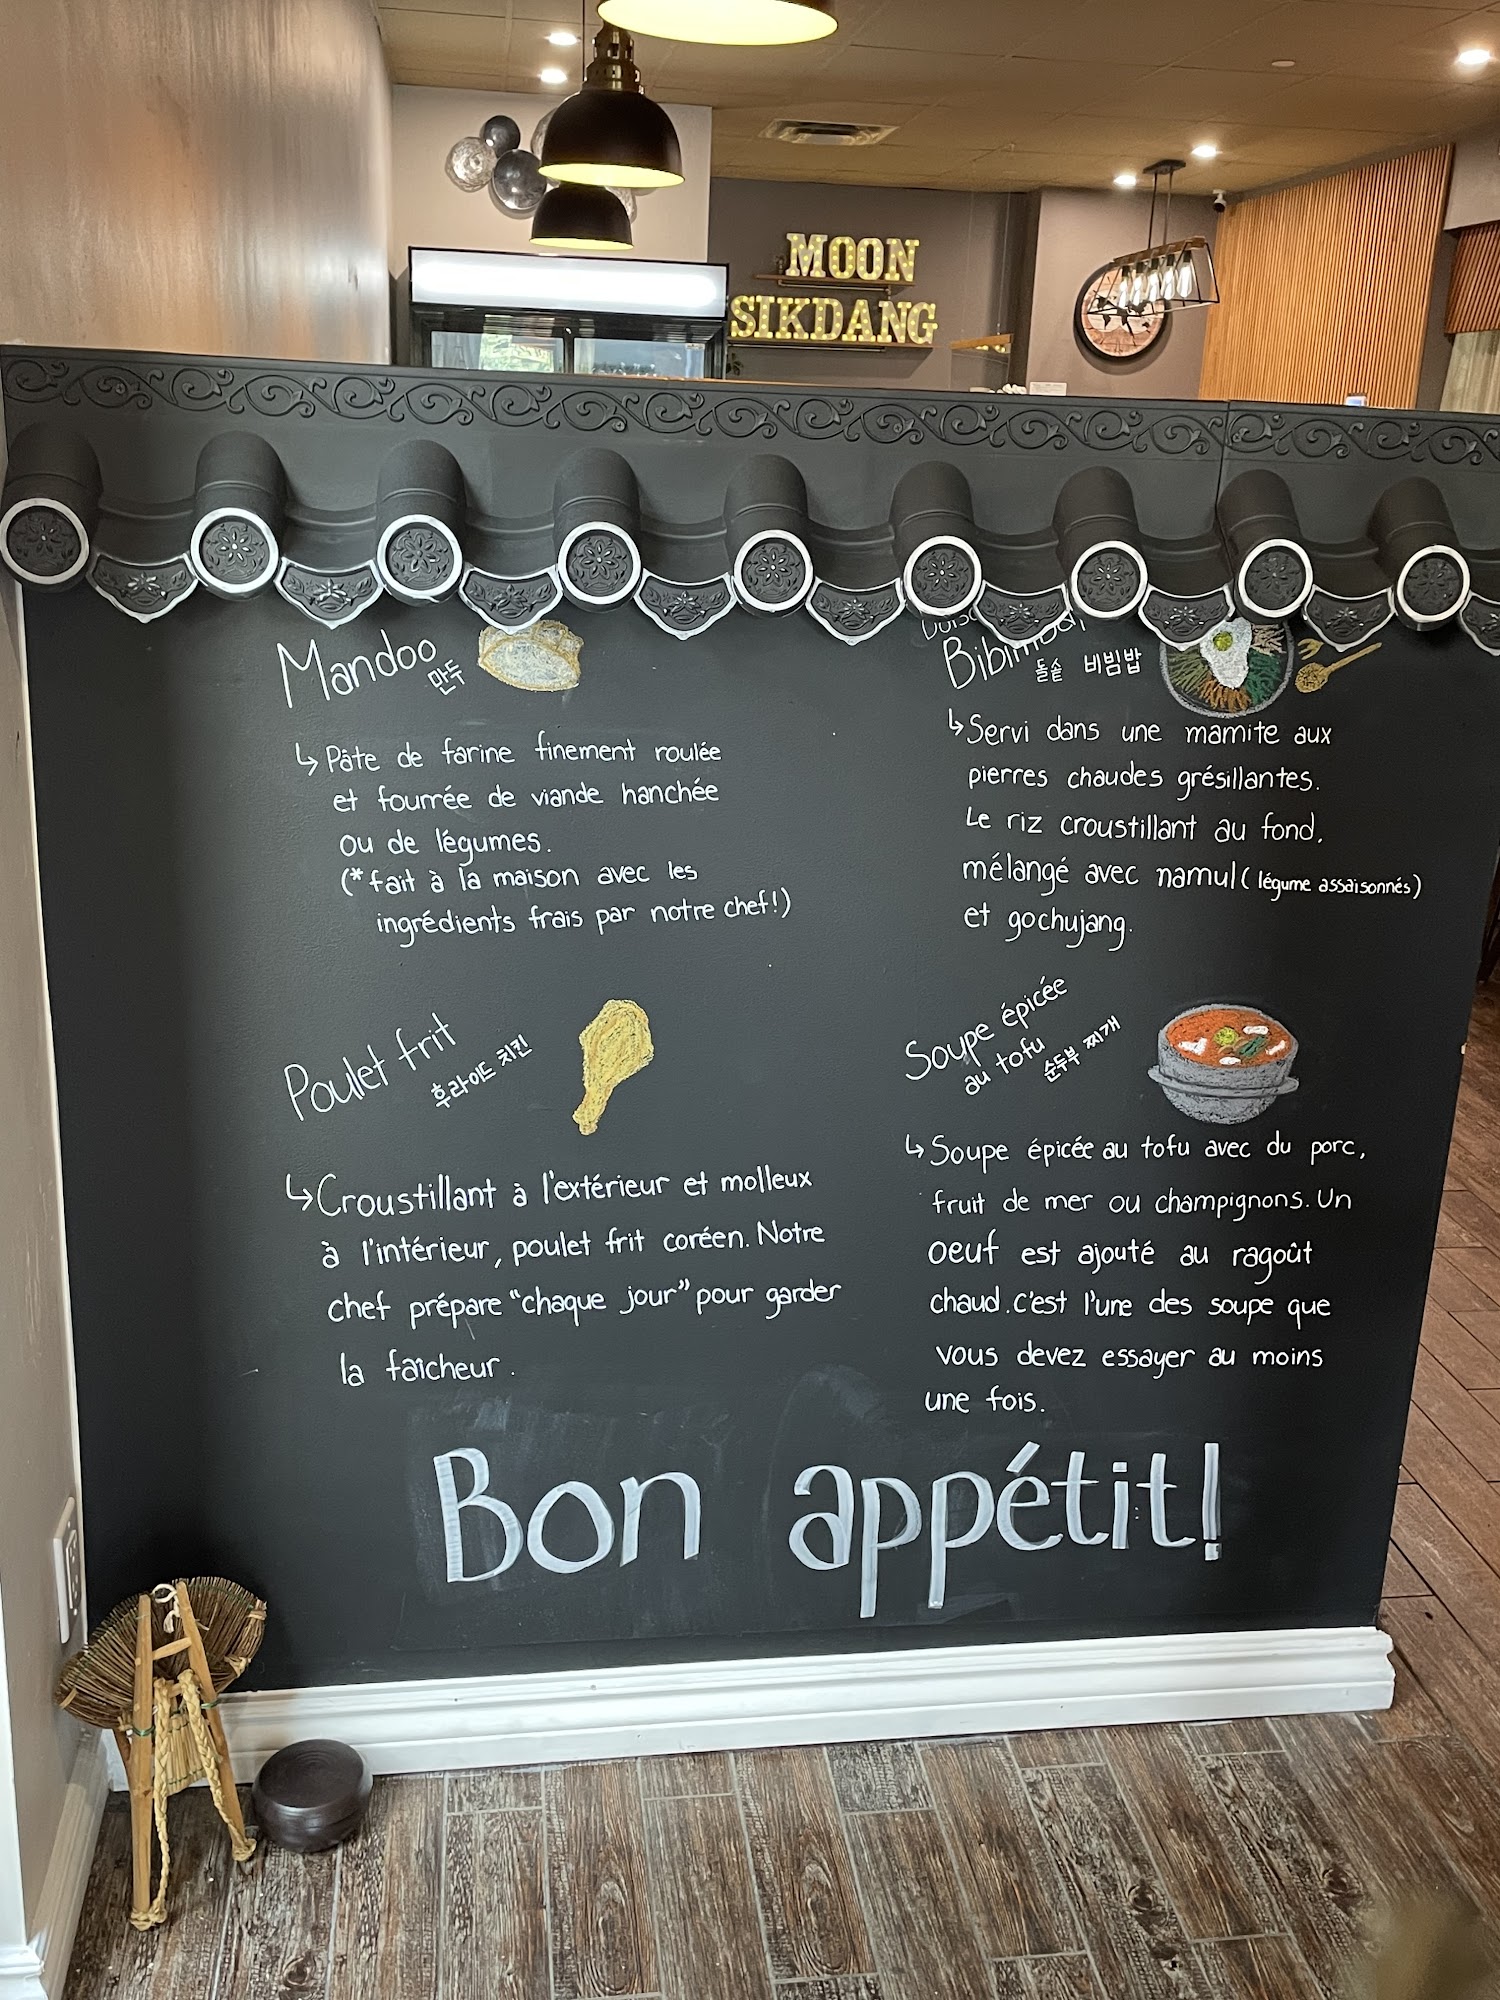 MOON
SIKDANG
Mandoo
만두
↳ Pâte de farine finement roulée
et fourrée de viande hanchée
ou de légumes.
(*fait à la maison avec les
ingrédients frais par notre chef!)
돌솥 비빔밥
↳ Servi dans une mamite aux
pierres chaudes grésillantes.
Le riz croustillant au fond,
mélangé avec namul (légume assaisonnés)
et gochujang.
Poulet frit
후라이드 치킨
↳ Croustillant à l'extérieur et molleux
à l'intérieur, poulet frit coréen. Notre
chef prépare "chaque jour" pour garder
la faîcheur.
Soupe épicée
au tofu
순두부 찌개
↳ Soupe épicée au tofu avec du porc,
fruit de mer ou champignons. Un
oeuf est ajouté au ragoût
chaud. c'est l'une des soupe que
vous devez essayer au moins
une fois.
Bon appétit!